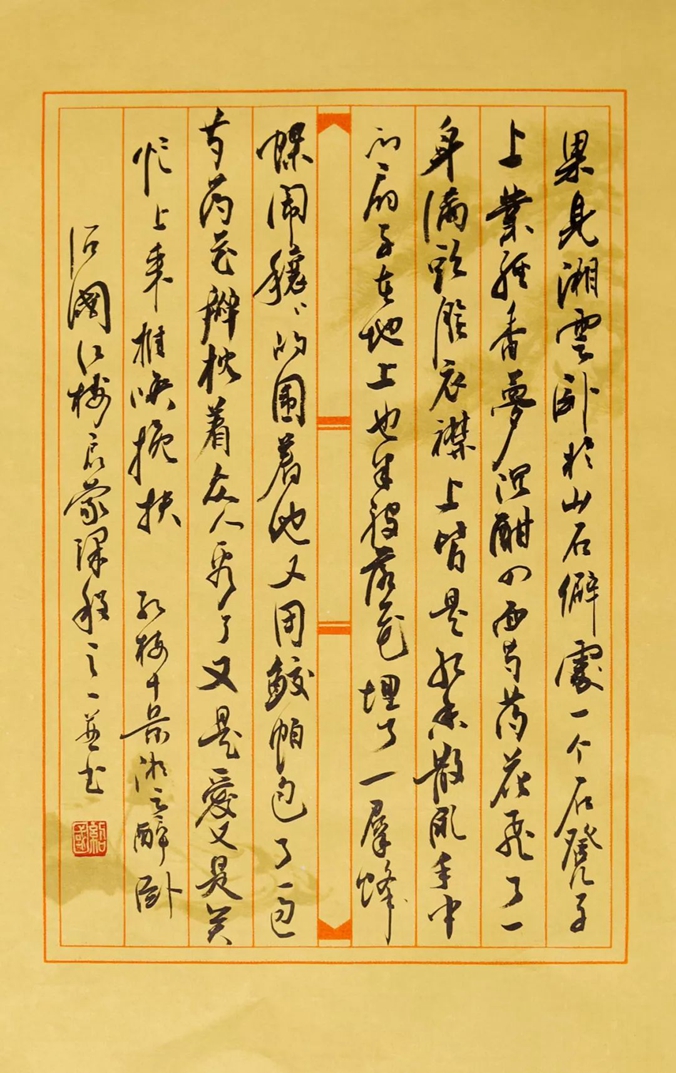 果見湘雲卧於山石僻處一个石凳子
上業經香夢沉酣四面芍药花飛了一
身滿頭臉衣襟上皆是紅香散亂手中
的扇子在地上也半被落花埋了一羣蜂
蝶鬧穰々的圍着他又用鮫帕包了一包
芍药花瓣枕着众人看了又是愛又是笑
忙上来推喚挽扶 紅楼十湘云醉卧
绍國红楼啟蒙課程之一並书
紹國